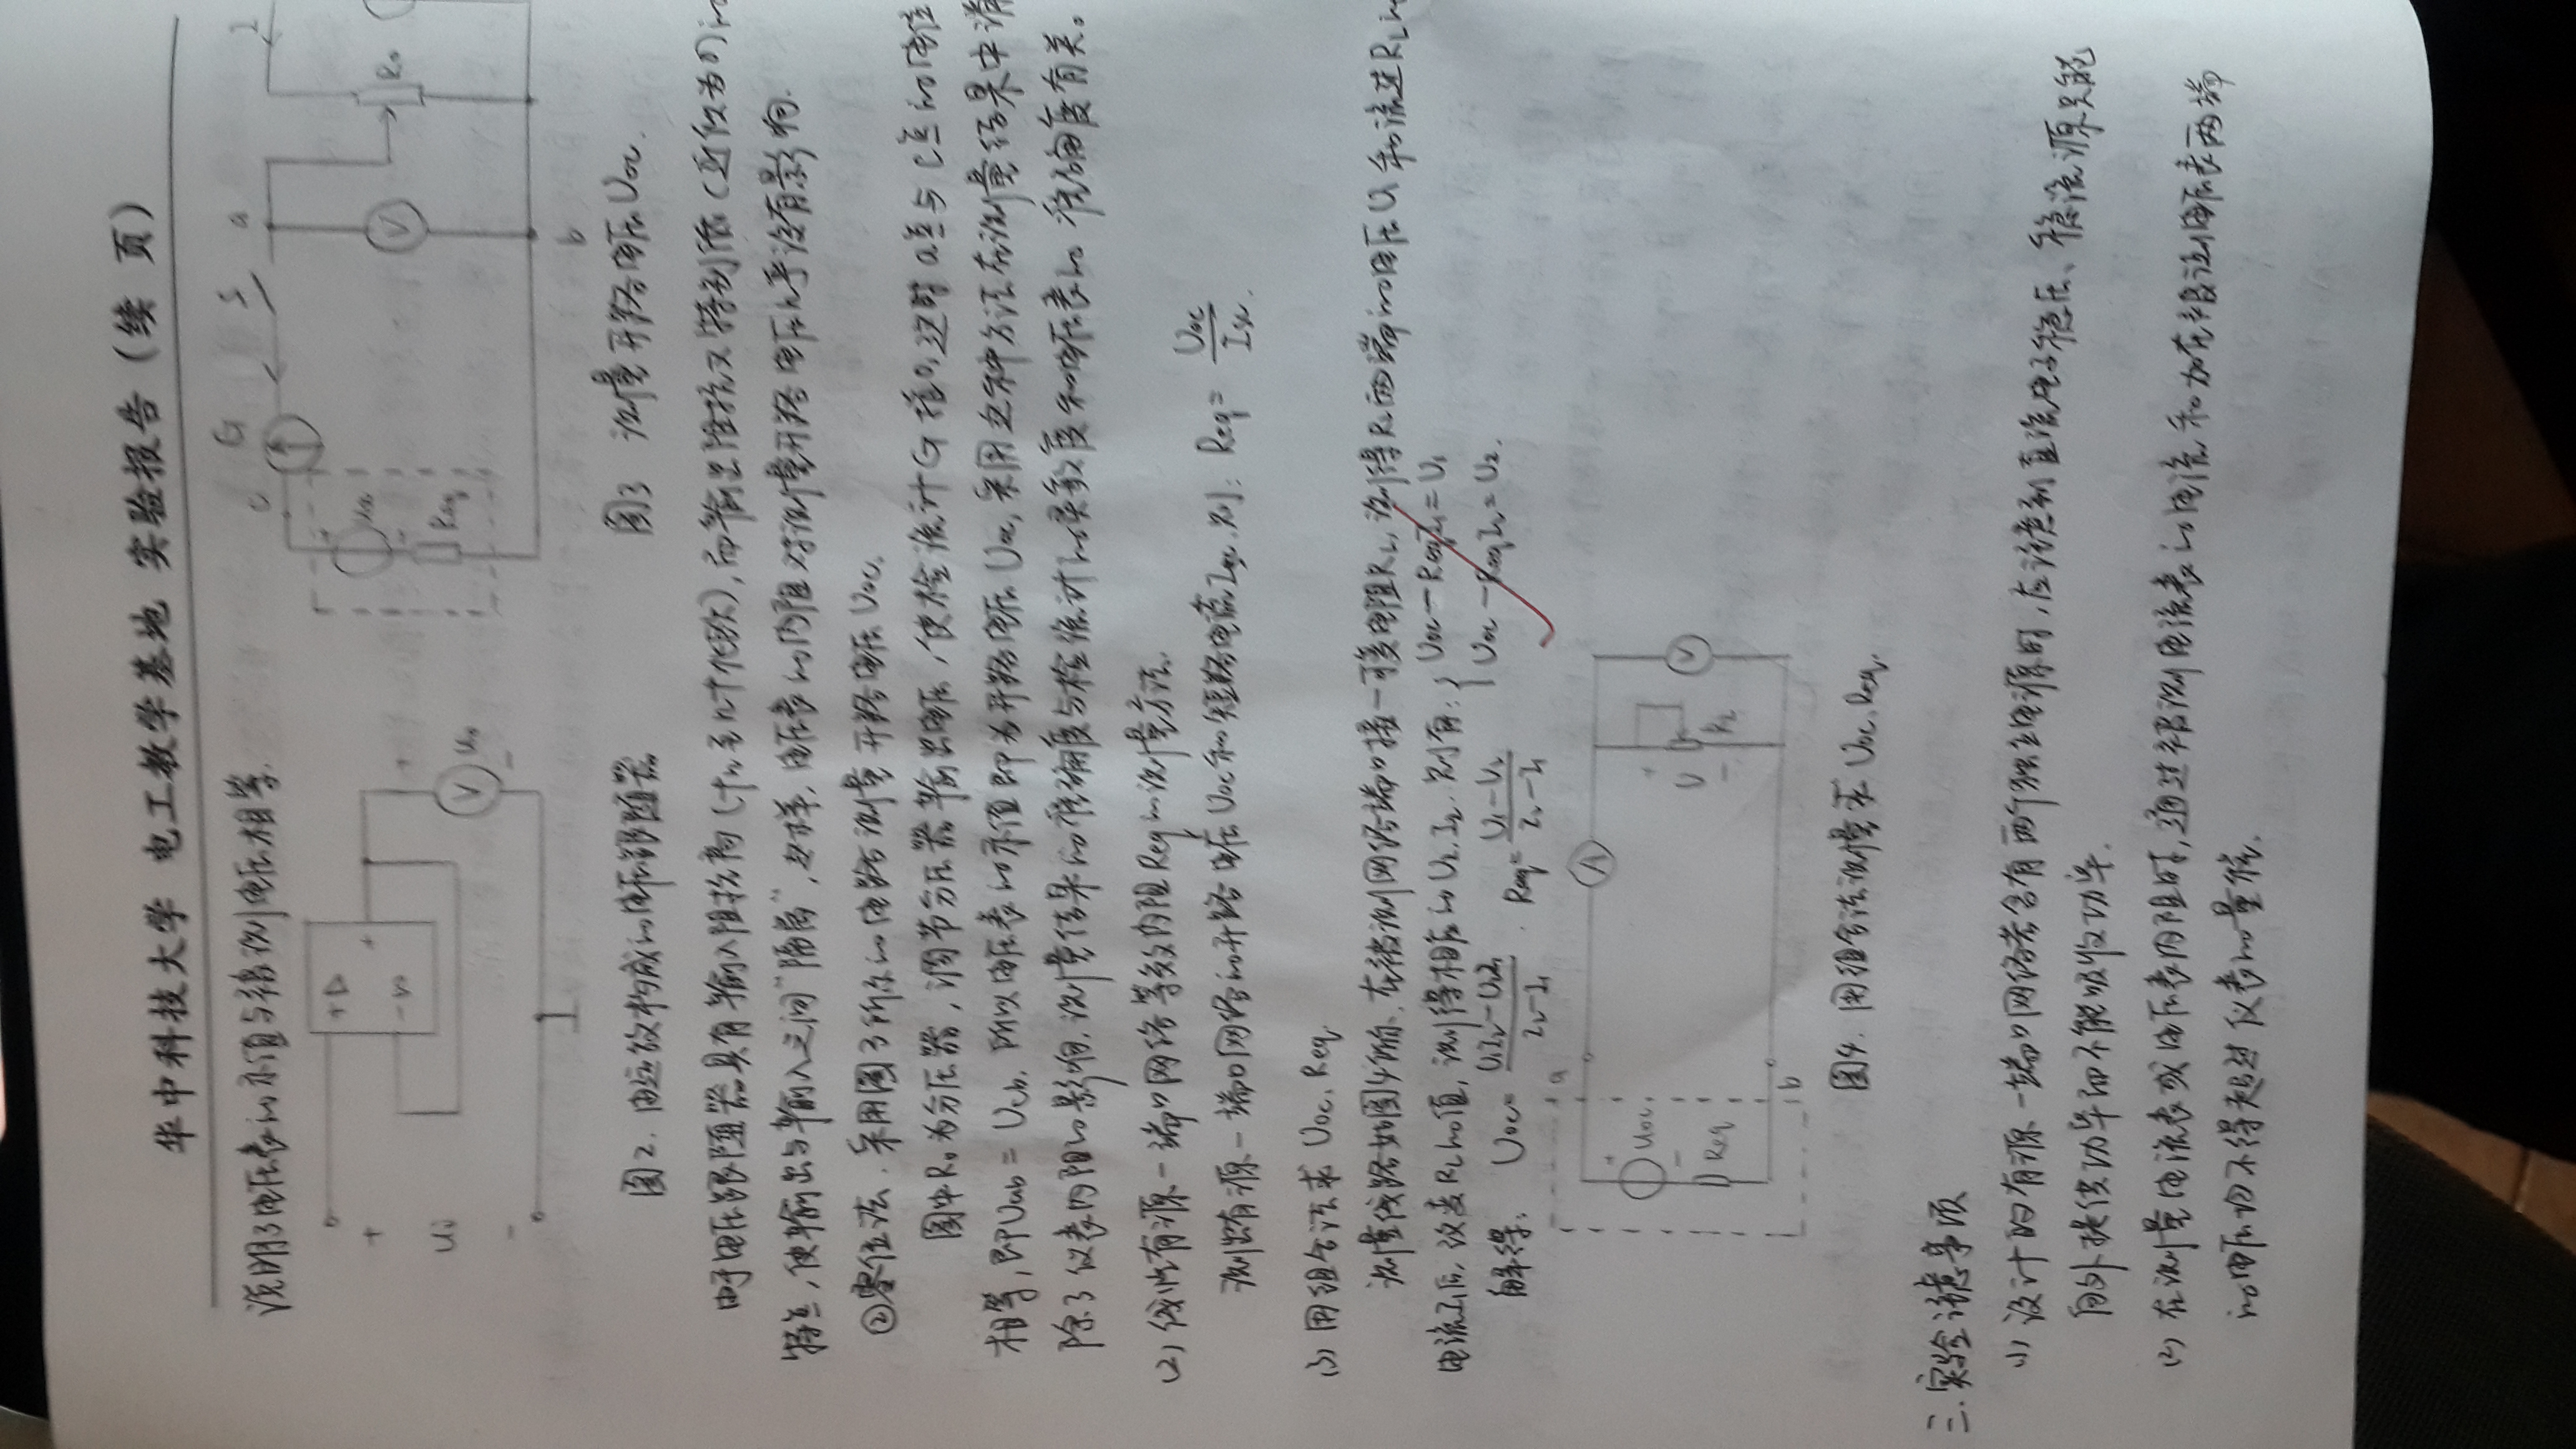 华中科技大学 电工教学基地 实验报告（续 页）
说明了电压表的示值与被测电压相等.
G S a I
c
+ ▷
+ +
- ▷
Ui V U0
Uoc Req V R0
b
图2. 由运放构成的电压跟随器 图3 测量开路电压Uoc.
由于电压跟随器具有输入阻抗高(十几至几十亿欧),而输出阻抗又特别低(近似为0)的
特点,使输出与输入之间"隔离",这样,电压表的内阻对测量开路电压几乎没有影响.
②零位法.采用图3所示的电路测量开路电压Uoc.
图中R0为分压器,调节分压器输出电压,使检流计G指0,这时a点与c点的电位
相等,即Uab=Ucb.所以电压表的示值即为开路电压Uoc,采用这种方法在测量结果中消
除了仪表内阻的影响.测量结果的准确度与检流计的灵敏度和电压表的准确度有关。
(2)线性有源一端口网络等效内阻Req的测量方法.
测出有源一端口网络的开路电压Uoc和短路电流Isc.则: Req=Uoc/Isc.
(3)用组合法求Uoc、Req
测量线路如图4所示.在被测网络端口接一可变电阻RL,测得RL两端的电压U1和流过RL的
电流I1后,改变RL的值,测得相应的U2、I2.则有: { Uoc-ReqI1=U1
Uoc-ReqI2=U2.
解得: Uoc=(U1I2-U2I1)/(I2-I1) . Req=(U1-U2)/(I2-I1)
a A
+ Uoc - Req
+ U - RL V
b
图4. 用组合法测量求Uoc、Req.
三.实验注意事项
(1) 设计的有源一端口网络若含有两个独立电源时,应注意到直流电子稳压、稳流源只能
向外提供功率而不能吸收功率.
(2) 在测量电流表或电压表内阻时,通过被测电流表的电流和加在被测电压表两端
的电压均不得超过仪表的量程.